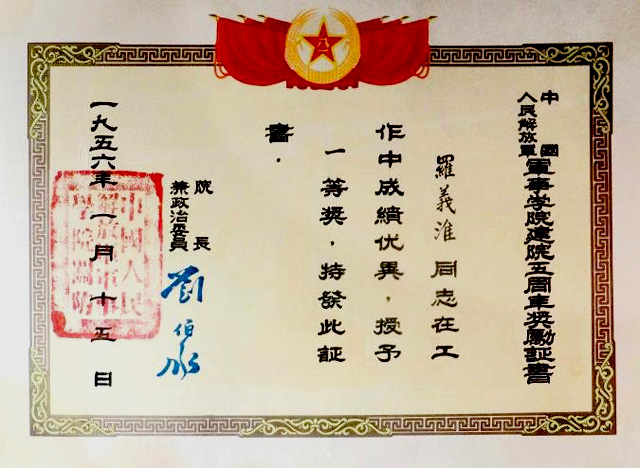 八一
中國
人民解放軍
軍事学院建院五周年奖勵証書
羅義淮同志在工
作中成績优異，授予
一等奖，特發此証
書．
院長
兼政治委員
劉伯承
一九五六年一月十五日
中國人民
學院關防